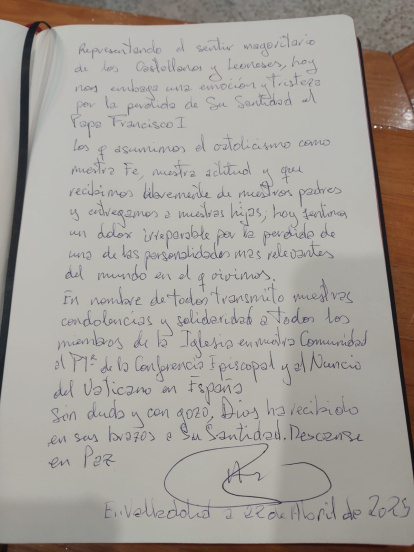 Representando el sentir mayoritario
de los Castellanos y Leoneses, hoy
nos embarga una emoción y tristeza
por la perdida de Su Santidad el
Papa Francisco I
Los q asumimos el catolicismo como
nuestra Fe, nuestra actitud y que
recibimos libremente de nuestros padres
y entregamos a nuestras hijas, hoy sentimos
un dolor irreparable por la perdida de
una de las personalidades mas relevantes
del mundo en el q vivimos.
En nombre de todos transmito nuestras
condolencias y solidaridad a todos los
miembros de la Iglesia en nuestra Comunidad
al Pte de la Conferencia Episcopal y al Nuncio
del Vaticano en España
Sin duda y con gozo, Dios ha recibido
en sus brazos a Su Santidad. Descanse
en Paz
En Valladolid a 22 de Abril de 2025